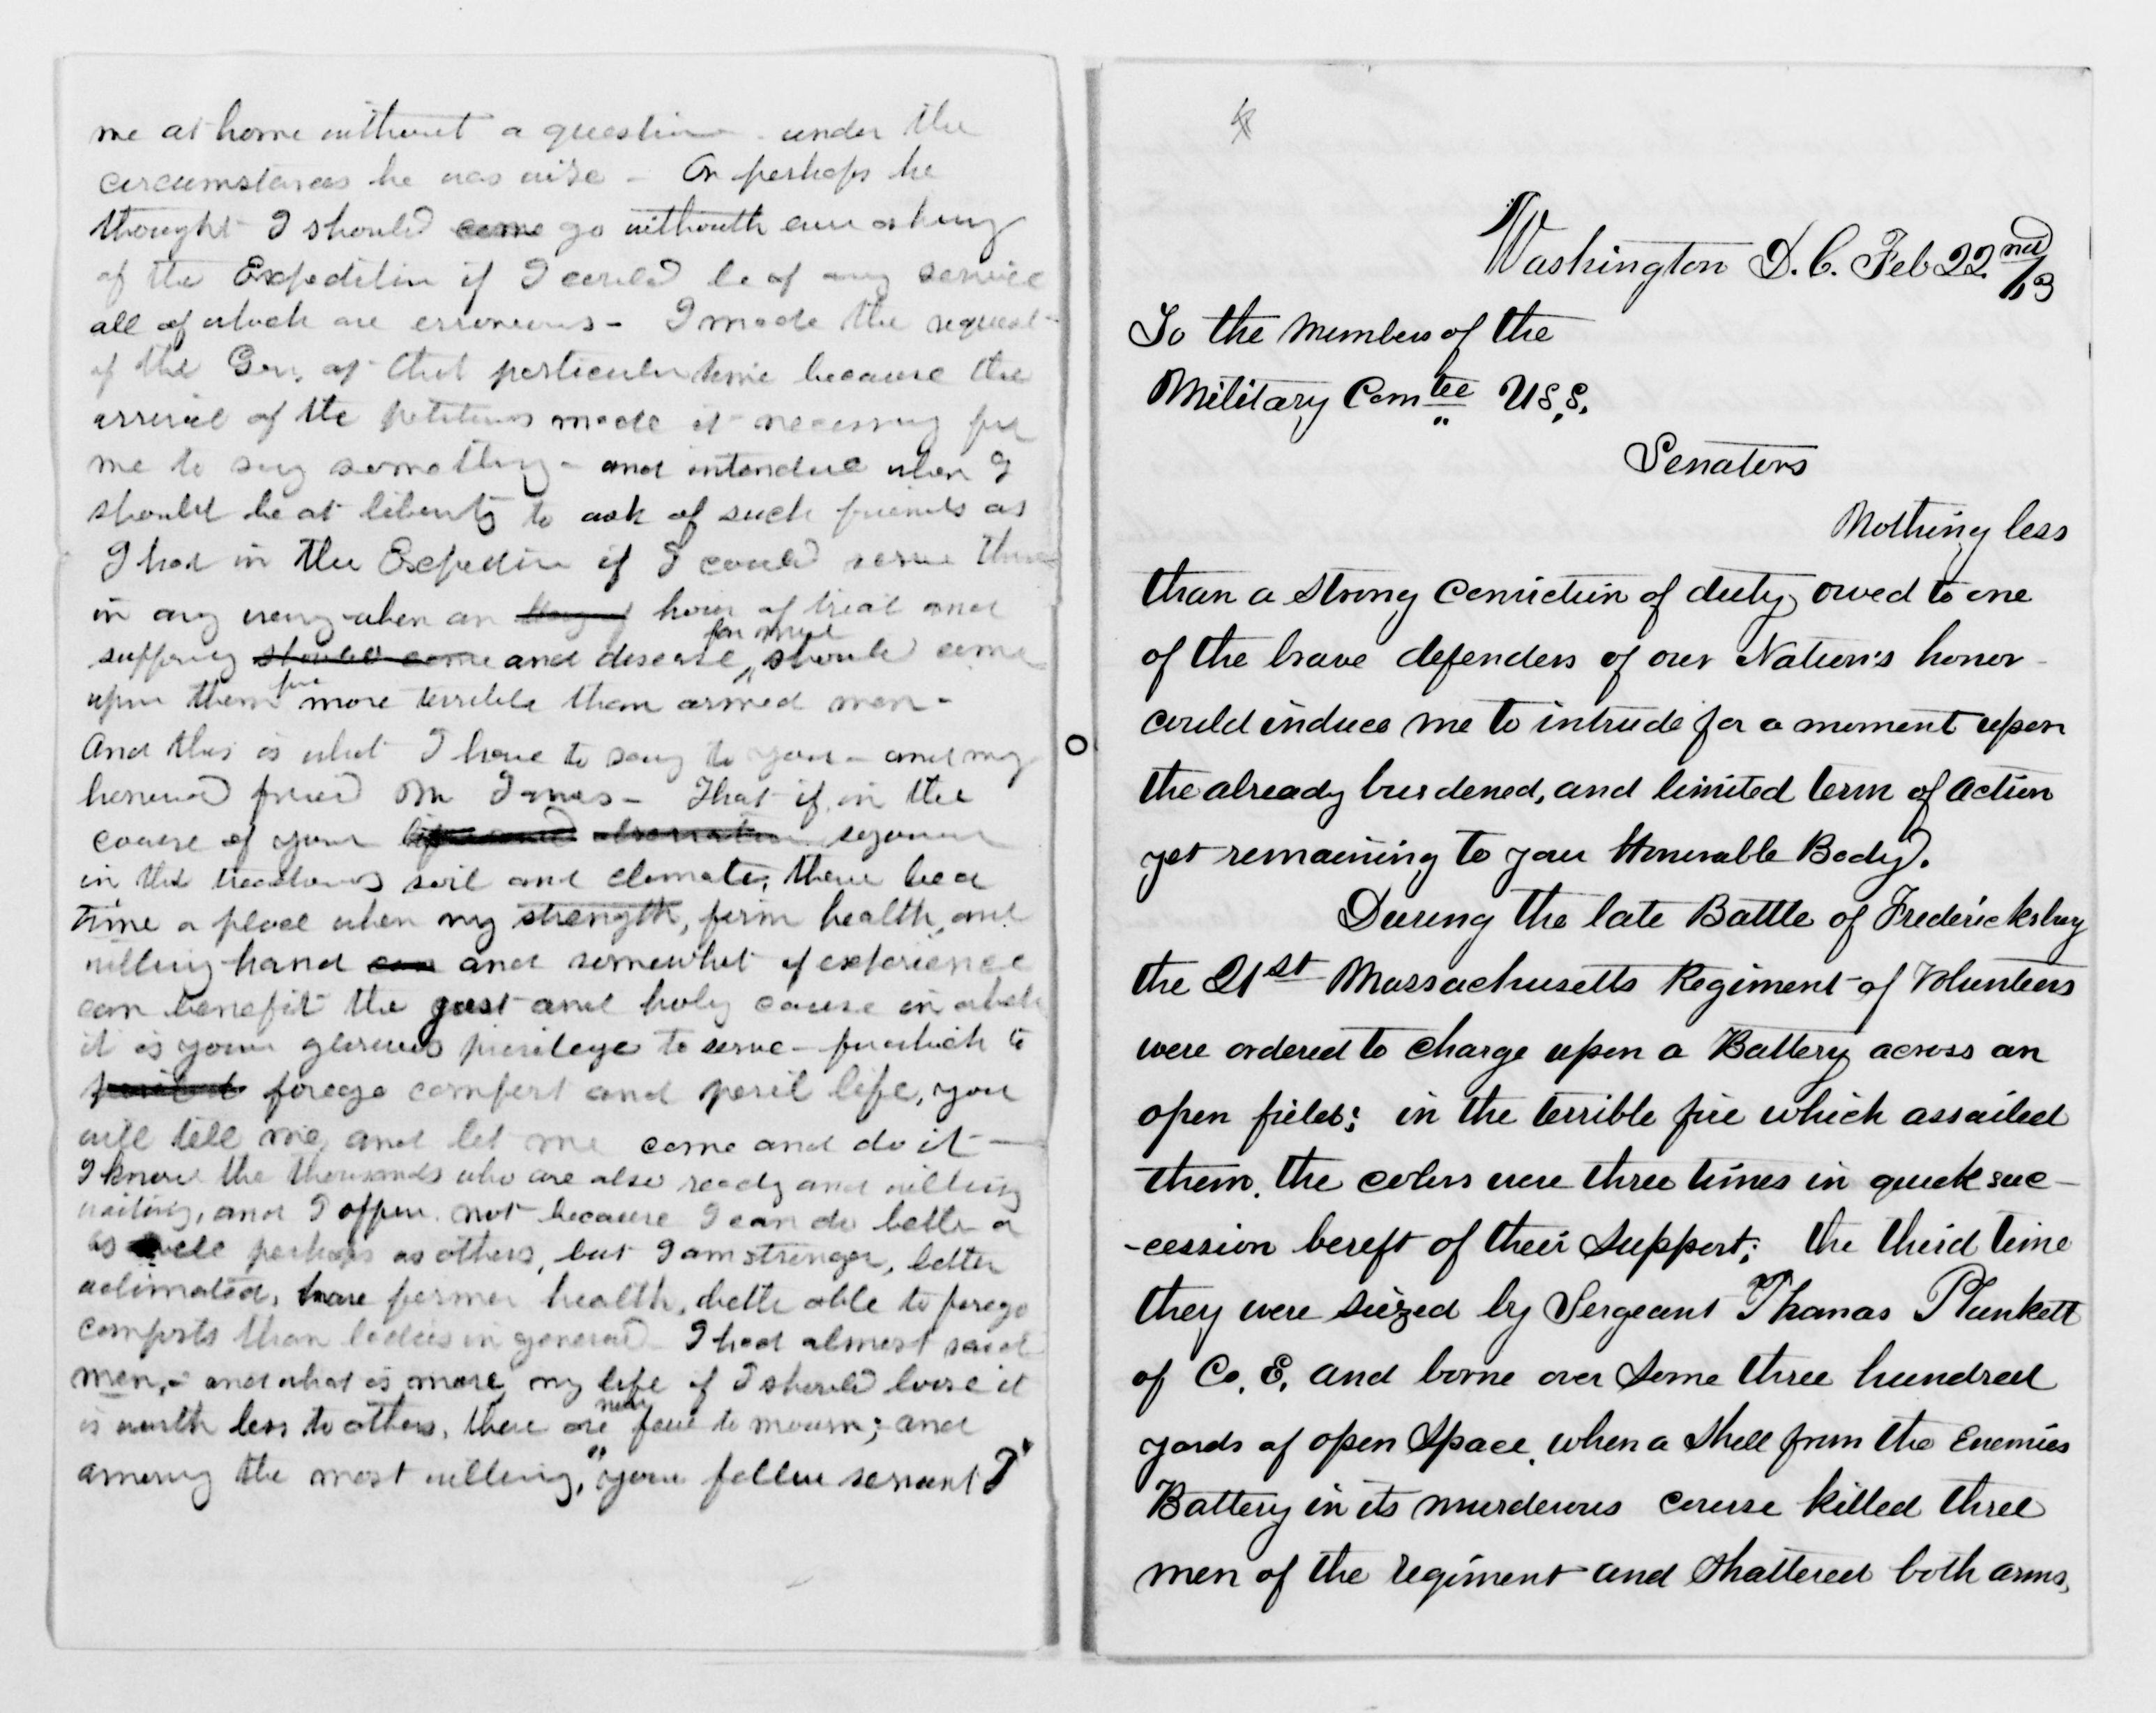 me at home without a question under the
circumstances he was wise - Or perhaps he
thought I should come go withouth ever asking
of the Expedition if I could be of any service
all of which are erroneous - I made the request
of the Gen. at that perticular time because the
arrival of the petitions made it necessary for
me to say something - and intended when I
should be at liberty to ask of such friends as
I had in the Expedition if I could serve them
in any way when an hour of trial and
suffering should come and disease, far more should come
upon them far more terrible than armed men -
And this is what I have to say to you - and my
honored friend Mr - That if in the
course of your sojourn
in that treacherous soil and climate, there be a
time a place when my strength, firm health, and
willing hand can and somewhat of experience
can benefit the just and holy cause in which
it is your glorious privilege to serve - for which to
forego comfort and peril life, you
will tell me, and let me come and do it -
I know the thousands who are also ready and willing
waiting, and I offer not because I can do better or
as well perhaps as others, but I am stronger, better
aclimated, have firmer health, better able to forego
comforts than ladies in general - I had almost said
men, - and what is more, my life if I should loose it
is worth less to others, there are now few to mourn; and
among the most willing, your fellow servant
Washington D.C. Feb 22nd /63
To the Members of the
Military Comtee U.S.S.
Senators
Nothing less
than a strong conviction of duty owed to one
of the brave defenders of our Nation's honor -
could induce me to intrude for a moment upon
the already burdened, and limited term of action
yet remaining to your Honorable Body.
During the late Battle of Fredericksburg
the 21st Massachusetts Regiment of Volunteers
were ordered to charge upon a Battery across an
open field; in the terrible fire which assailed
them, the colors were three times in quick suc-
-cession bereft of their support; the third time
they were siezed by Sergeant Thomas Plunkett
of Co. E. and borne over some three hundred
yards of open space, when a shell from the Enemies
Battery in its murderous course killed three
men of the regiment and shattered both arms,